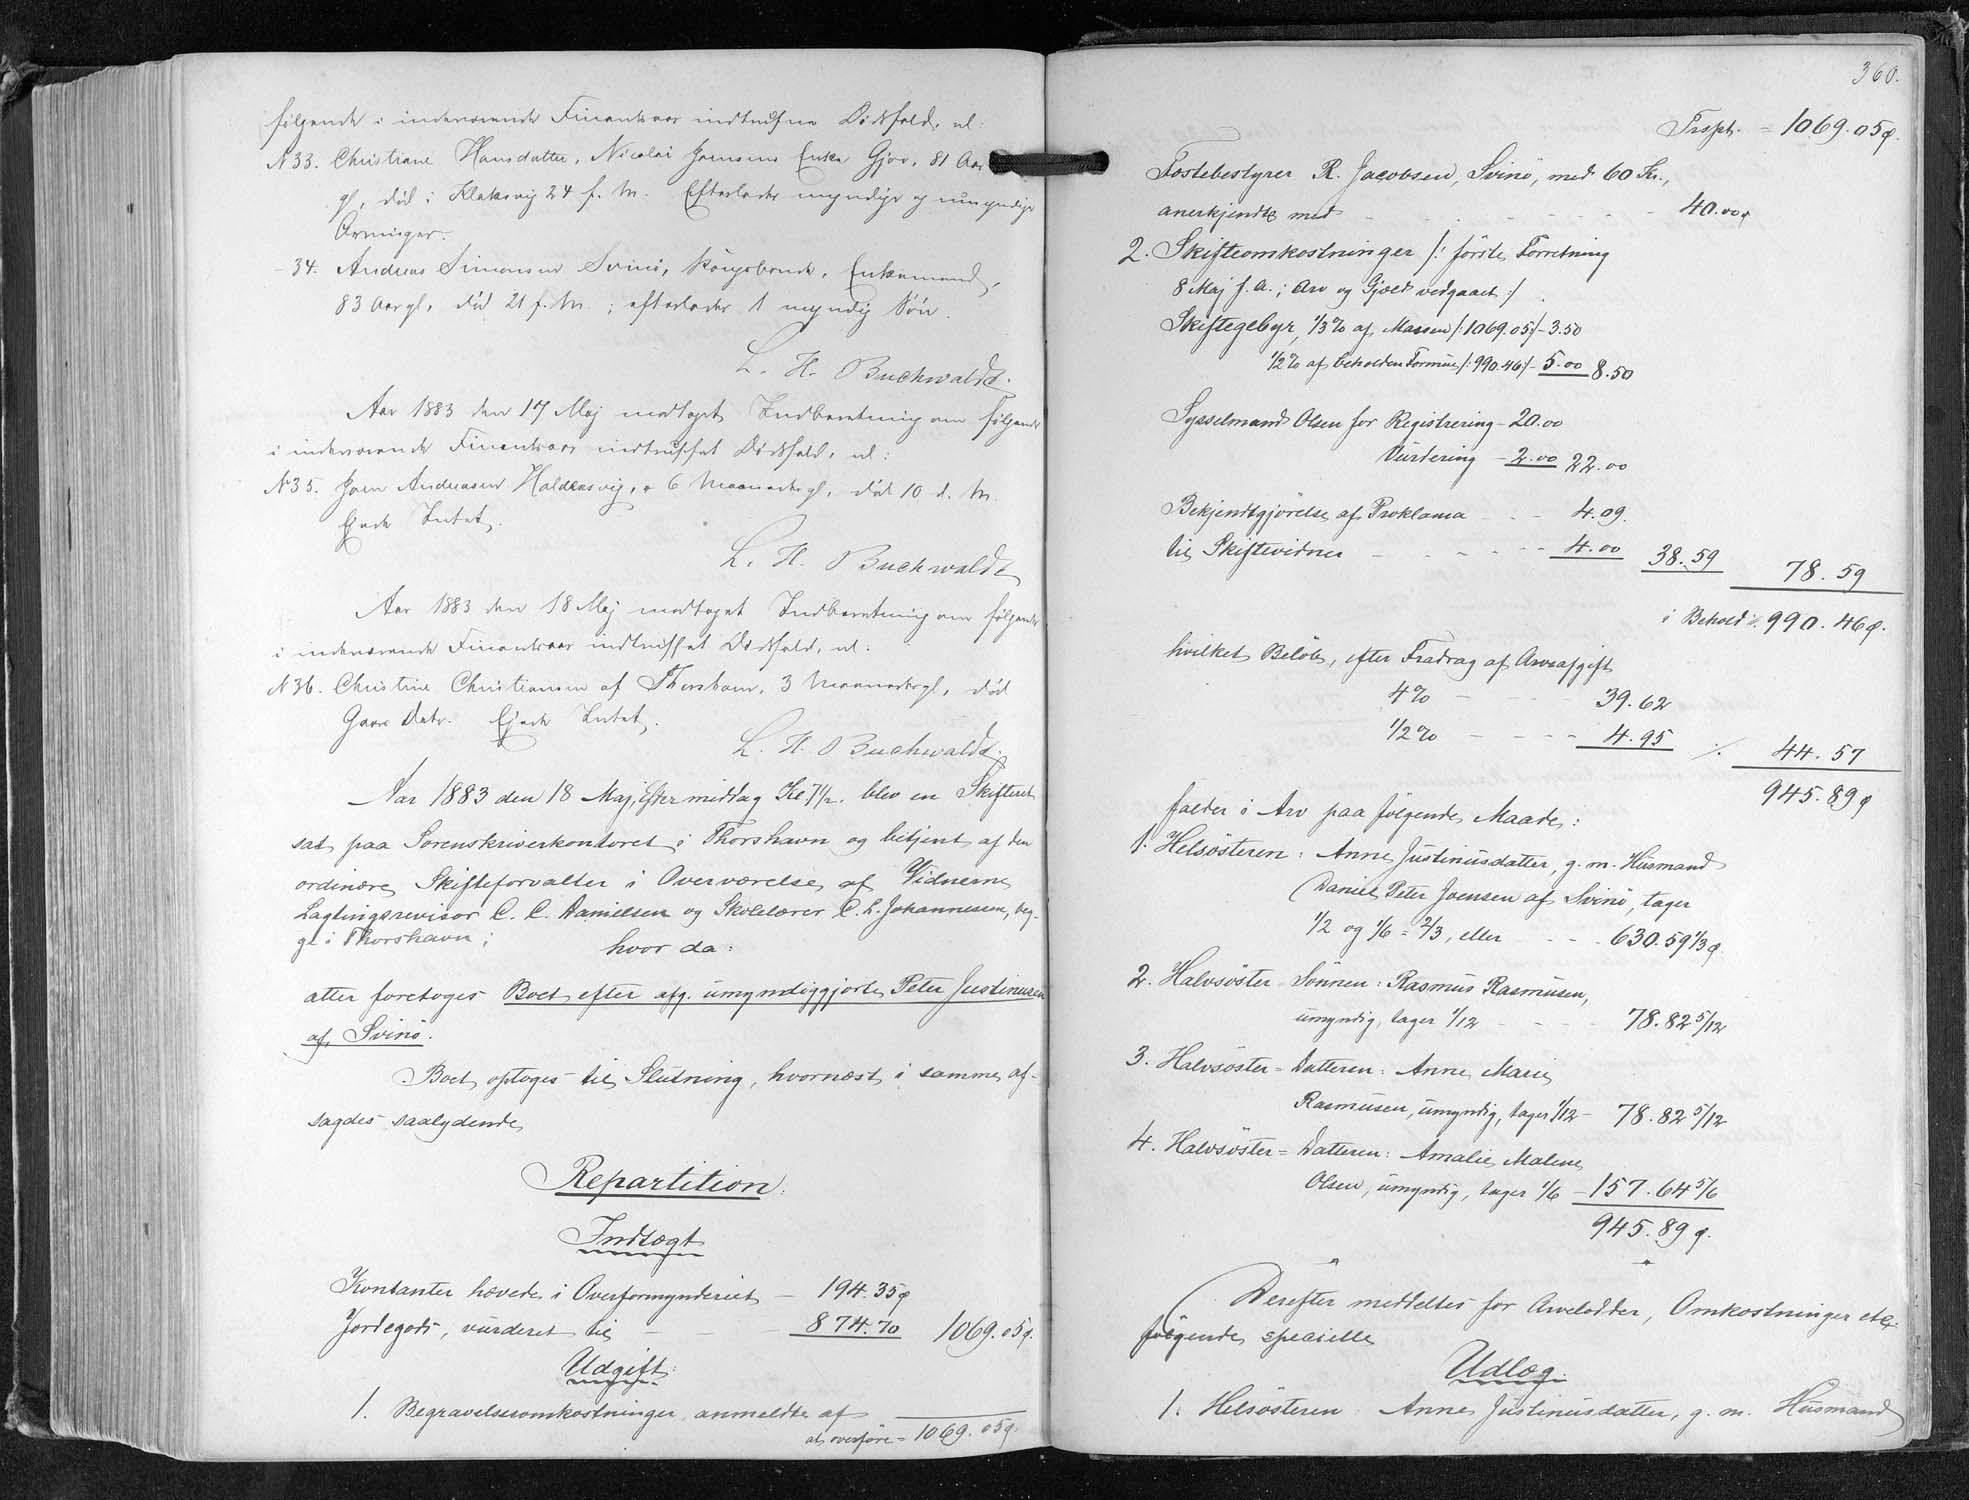 følgende i indeværende Finantsaar indtrufne Dødsfald, nl:
N 33. Christiane Hansdatter, Nicolai Joensens Enke Gjov, 81 Aar
gl, død i Klaksvig 24 f. M. Efterlader myndige og umyndige
Arvinger.
- 34. Andreas Simonsen Svinö, Kongsbonde, Enkemand,
83 Aar gl, død 21 f. M.; efterlader 1 myndig Sön.
L. H. Buchwaldt.
Aar 1883 den 17 Maj modtoges Indberetning om følgende
i indeværende Finantsaar indtruffet Dødsfald, nl:
N 35. Joen Andreasen Haldersvig, 6 Maaneder gl, død 10 d. M.
Ejede Intet.
L. H. Buchwaldt
Aar 1883 den 18 Maj modtoges Indberetning om følgende
i indeværende Finantsaar indtruffet Dødsfald, nl:
N 36. Christine Christiansen af Thorshavn, 3 Maaneder gl, død
Gaars Dato. Ejede Intet.
L. H. Buchwaldt.
Aar 1883 den 18 Maj, Eftermiddag Kl 7½, blev en Skifteret
sat paa Sorenskriverkontoret i Thorshavn og betjent af den
ordinære Skifteforvalter i Overværelse af Vidnerne
Lagtingsrevisor C. C. Danielsen og Skolelærer C. L. Johannesen, beg-
ge i Thorshavn;
hvor da:
atter foretoges Boet efter afg. umyndiggjorte Peter Justinusen
af Svinö.
Boet optoges til Slutning, hvornæst i samme af-
sagdes saalydende
Repartition:
Indtægt
Kontanter hævede i Overformynderiet - 194.35 ø
Jordegods, vurderet til - - 874.70 1069.05 ø.
Udgift:
1. Begravelsesomkostninger, anmeldte af
at overføre = 1069.05 ø.
360.
Trspt. = 1069.05 ø.
Fæstebestyrer R. Jacobsen, Svinö, med 60 Kr.,
anerkjendte med - - - - - - 40.00 ø
2. Skifteomkostninger /: første Forretning
8 Maj f. A.; Arv og Gjæld vedgaaet :/
Skiftegebyr, 1/3 % af Massen /: 1069.05 :/ - 3.50
1/2 % af beholden Formue /: 990.46 :/ - 5.00 8.50
Sysselmand Olsen for Registrering - 20.00
Vurdering - 2.00 22.00
Bekjendtgjörelse af Proklama - - 4.09.
til Skiftevidner - - - - - 4.00 38.59 78.59
i Behold 990.46 ø.
hvilket Beløb, efter Fradrag af Arveafgift
4 % - - - 39.62
1/2 % - - - 4.95 ./. 44.57
945.89 ø
falder i Arv paa følgende Maade:
1. Helsösteren: Anne Justinusdatter, g. m. Husmand
Daniel Peter Joensen af Svinö, tager
1/2 og 1/6 = 2/3, eller - - - 630.59 1/3 ø.
2. Halvsöster-Sönnen: Rasmus Rasmusen,
umyndig, tager 1/12 - - - 78.82 5/12
3. Halvsöster-Datteren: Anne Marie
Rasmusen, umyndig, tager 1/12 - 78.82 5/12
4. Halvsöster-Datteren: Amalie Malene
Olsen, umyndig, tager 1/6 - 157.64 5/6
945.89 ø.
Derefter meddeltes for Arvelodder, Omkostninger etc.
følgende specielle
Udlæg:
1. Helsösteren Anne Justinusdatter, g. m. Husmand